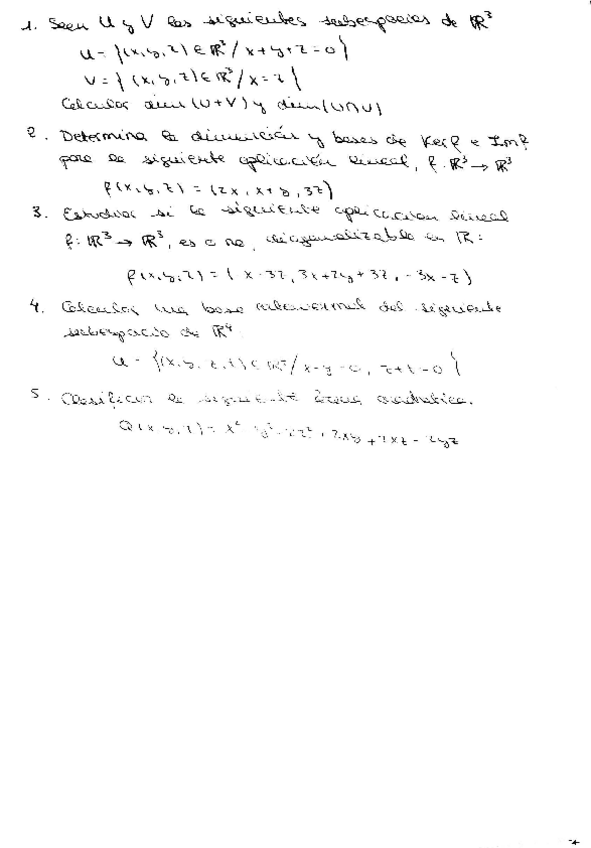 1. Sean U y V los siguientes subespacios de ℝ³
U = {(x,y,z) ∈ ℝ³ / x+y+z=0}
V = {(x,y,z) ∈ ℝ³ / x=z}
Calcular dim(U+V) y dim(U∩V)
2. Determina la dimensión y bases de Kerf e Imf
para la siguiente aplicación lineal, f: ℝ³ → ℝ³
f(x,y,z) = (2x, x+y, 3z)
3. Estudiar si la siguiente aplicación lineal
f: ℝ³ → ℝ³, es o no, diagonalizable en ℝ:
f(x,y,z) = (x-3z, 3x+2y+3z, -3x-z)
4. Calcular una base ortonormal del siguiente
subespacio de ℝ⁴
U = {(x,y,z,t) ∈ / x-y=0, z+t=0}
5. Clasificar la siguiente forma cuadrática.
Q(x,y,z) = x² + 2xy + 2xz - 2yz